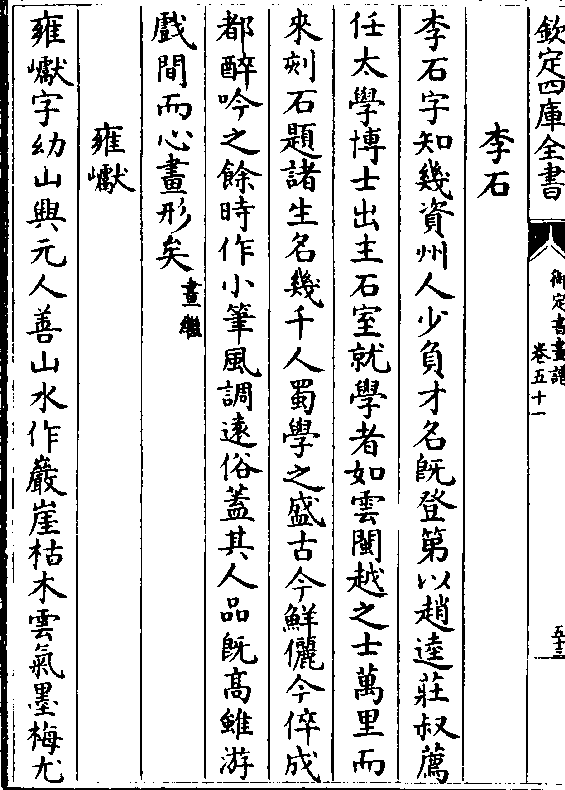 欽定四庫全書
御定書畫譜
卷五十一
五十三
李石
李石字知幾資州人少負才名既登第以趙逵莊叔薦
任太學博士出主石室就學者如雲閩越之士萬里而
來刻石題諸生名幾千人蜀學之盛古今鮮儷今倅成
都醉吟之餘時作小筆風調遠俗蓋其人品既高雖游
戲間而心畫形矣畫繼
雍巘
雍巘字幼山興元人善山水作巖崖枯木雲氣墨梅尤